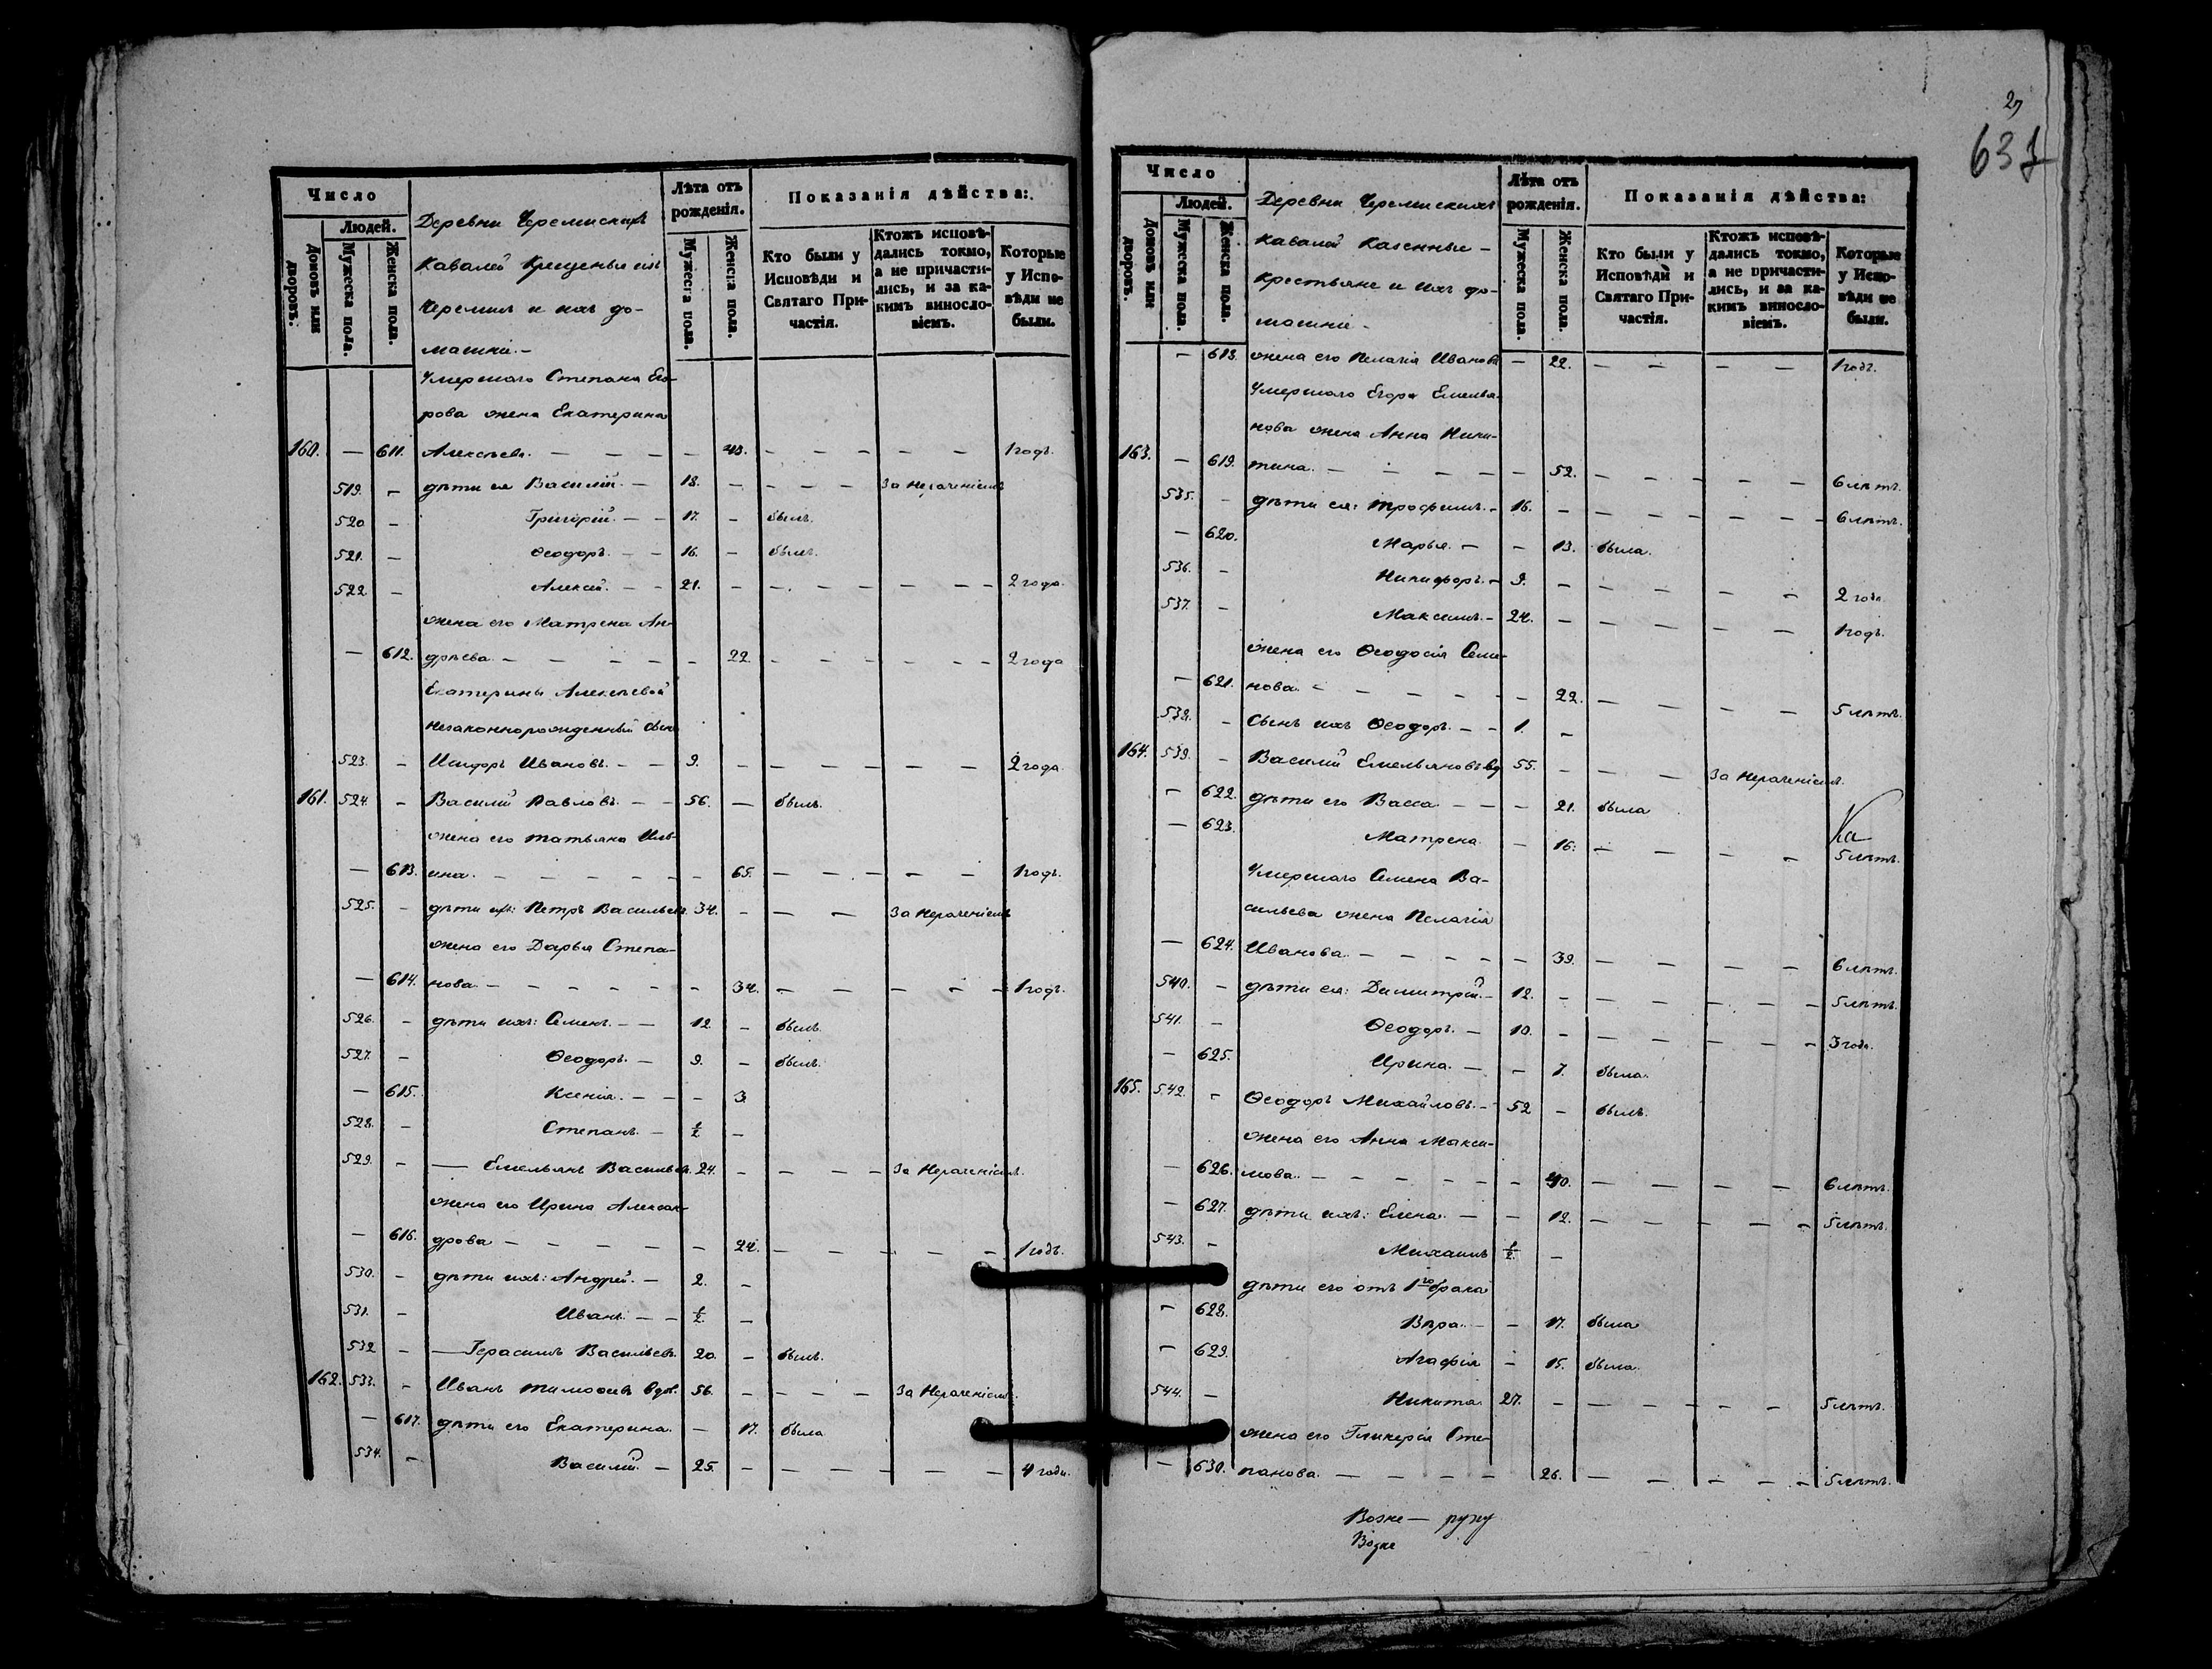 Число
Людей.
Домовъ или дворовъ.
Мужеска пола.
Женска пола.
Деревни Черемискихъ
Кавалей Крещеные изъ
Черемисъ и ихъ до-
машніе.-
Лѣта отъ рожденія.
Мужеска пола.
Женска пола.
Показанія дѣйства:
Кто были у Исповѣди и Святаго При-частія.
Ктожъ исповѣ-дались токмо, а не причасти-лись, и за ка-кимъ винослo-віемъ.
Которые у Испо-вѣди не были.
Умершаго Степана Его-
рова жена Екатерина
160. — 611. Алексѣева. — — — — 43. — — — — — 1 годъ.
519. — дѣти ея Василій. — 18. — — — — За нераченіемъ
520. — Григорій. — — 17. — былъ.
521. — Ѳеодоръ. — — 16. — былъ.
522. — Алексѣй. — — 21. — — — — — — — 2 года.
жена его Матрена Ан-
— 612. дрѣева. — — — — — 22. — — — — — — 2 года
Екатерины Алексѣевой
незаконнорожденный сынъ
523. — Исидоръ Ивановъ. — — 9. — — — — — — 2 года
161. 524. — Василій Павловъ. — — 56. — былъ.
жена его Татьяна Иль-
— 613. ина. — — — — — — 65. — — — — — 1 годъ.
525. — дѣти ихъ: Петръ Васильевъ. 34. — — — За нераченіемъ
жена его Дарья Степа-
— 614. нова. — — — — — — 34. — — — — — 1 годъ.
526. — дѣти ихъ: Семенъ. — — 12. — былъ.
527. — Ѳеодоръ. — 9. — былъ.
— 615. Ксенія. — — — 3.
528. — Степанъ. — 1/2. —
529. — — Емельянъ Васильевъ. 24. — — — — За нераченіемъ.
жена его Ирина Алексан-
— 616. дрова — — — — — 24. — — — — — 1 годъ.
530. — дѣти ихъ: Андрей. — 2. —
531. — Иванъ. — — 1/2. —
532. — — Герасимъ Васильевъ. 20. — былъ.
162. 533. — Иванъ Тимоѳеевъ вдов. 56. — — — — За нераченіемъ.
— 617. дѣти его Екатерина. — 17. была
534. — Василій. — 25. — — — — — — 4 года.
2)
631
Число
Людей.
Домовъ или дворовъ.
Мужеска пола.
Женска пола.
Деревни Черемискихъ
Кавалей Казенные -
Крестьяне и ихъ до-
машніе -
Лѣта отъ рожденія.
Мужеска пола.
Женска пола.
Показанія дѣйства:
Кто были у Исповѣди и Святаго При-частія.
Ктожъ исповѣ-дались токмо, а не причасти-лись, и за ка-кимъ винослo-віемъ.
Которые у Испо-вѣди не были.
— 618. жена его Пелагія Иванова — 22. — — — — 1 годъ.
Умершаго Егора Емелья-
нова жена Анна Ники-
163. — 619. тина. — — — — — 52. — — — — — 6 лѣтъ.
535. — дѣти ея: Трофимъ. — 16. — — — — — — 6 лѣтъ.
— 620. Марья. — — 13. была.
536. — Никифоръ. — 9. — — — — — 2 года
537. — Максимъ. — 24. — — — — — 1 годъ.
жена его Ѳеодосія Семе-
— 621. нова. — — — — — — 22. — — — — 5 лѣтъ.
538. — Сынъ ихъ Ѳеодоръ. — — 1. —
164. 539. — Василій Емельяновъ вд. 55. — — — За нераченіемъ.
— 622. дѣти его Васса. — — — 21. была
— 623. Матрена. — 16. — — — — 5 лѣтъ.
Умершаго Семена Ва-
сильева жена Пелагія
— 624. Иванова. — — — — — 39. — — — — 6 лѣтъ.
540. — дѣти ея: Димитрій. — 12. — — — — — — 5 лѣтъ.
541. — Ѳеодоръ. — 10. — — — — — — 3 года.
— 625. Ирина. — — 7. была.
165. 542. — Ѳеодоръ Михайловъ. — 52 — былъ.
жена его Анна Макси-
— 626. мова. — — — — — — 40. — — — — 6 лѣтъ.
— 627. дѣти ихъ: Елена. — — 12. — — — — — 5 лѣтъ.
543. — Михаилъ 1/2. —
дѣти его отъ 1го брака
— 628. Вѣра. — — 17. была
— 629. Агафія — 15. была.
544. — Никита. 27. — — — — — — 5 лѣтъ.
жена его Гликерія Сте-
— 630. панова. — — — — 26. — — — — — 5 лѣтъ.